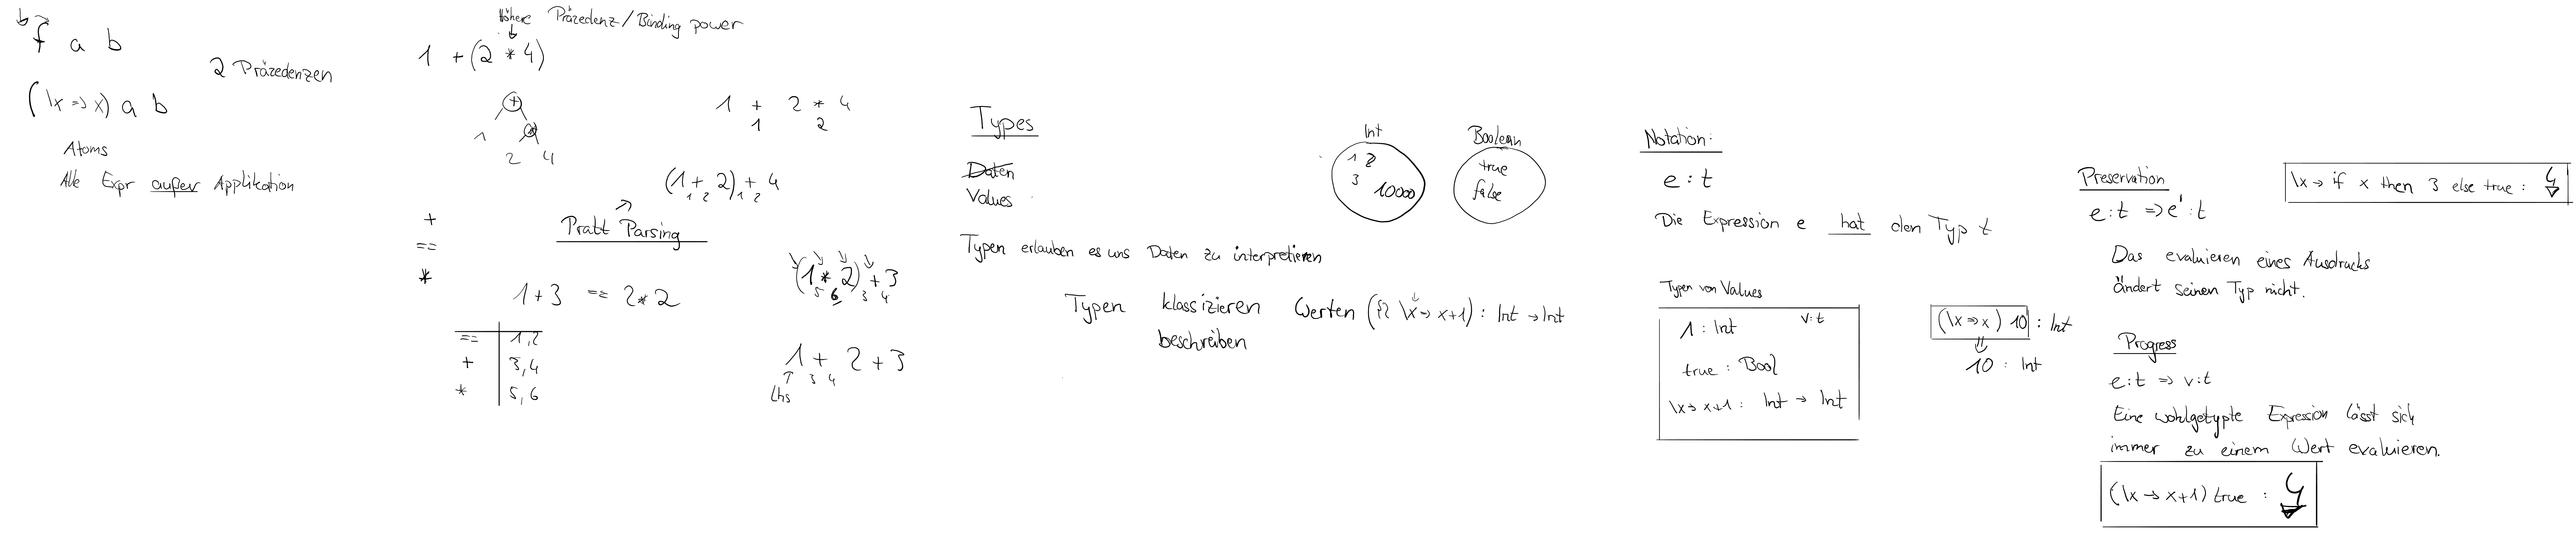 f a b
(\x => x) a b
Atoms
Alle Expr außer Applikation
2 Präzedenzen
Höhere Präzedenz/Binding power
1 + (2 * 4)
+
1 *
2 4
1 + 2 * 4
1 2
(1 + 2) + 4
1 2 1 2
Pratt Parsing
+
==
*
1 + 3 == 2 * 2
== 1, 2
+ 3, 4
* 5, 6
(1 * 2) + 3
5 6 3 4
1 + 2 + 3
3 4
lhs
Types
Daten
Values
Typen erlauben es uns Daten zu interpretieren
Typen klassizieren Werten (\x -> x+1) : Int -> Int
beschreiben
Int
1 2
3 10000
Boolean
true
false
Notation:
e : t
Die Expression e hat den Typ t
Typen von Values
1 : Int v:t
true : Bool
\x -> x+1 : Int -> Int
(\x => x) 10 : Int
⇓
10 : Int
Preservation
e:t => e' : t
Das evaluieren eines Ausdrucks
ändert seinen Typ nicht.
Progress
e:t => v:t
Eine wohlgetypte Expression lässt sich
immer zu einem Wert evaluieren.
(\x -> x+1) true : ↯
\x -> if x then 3 else true : ↯